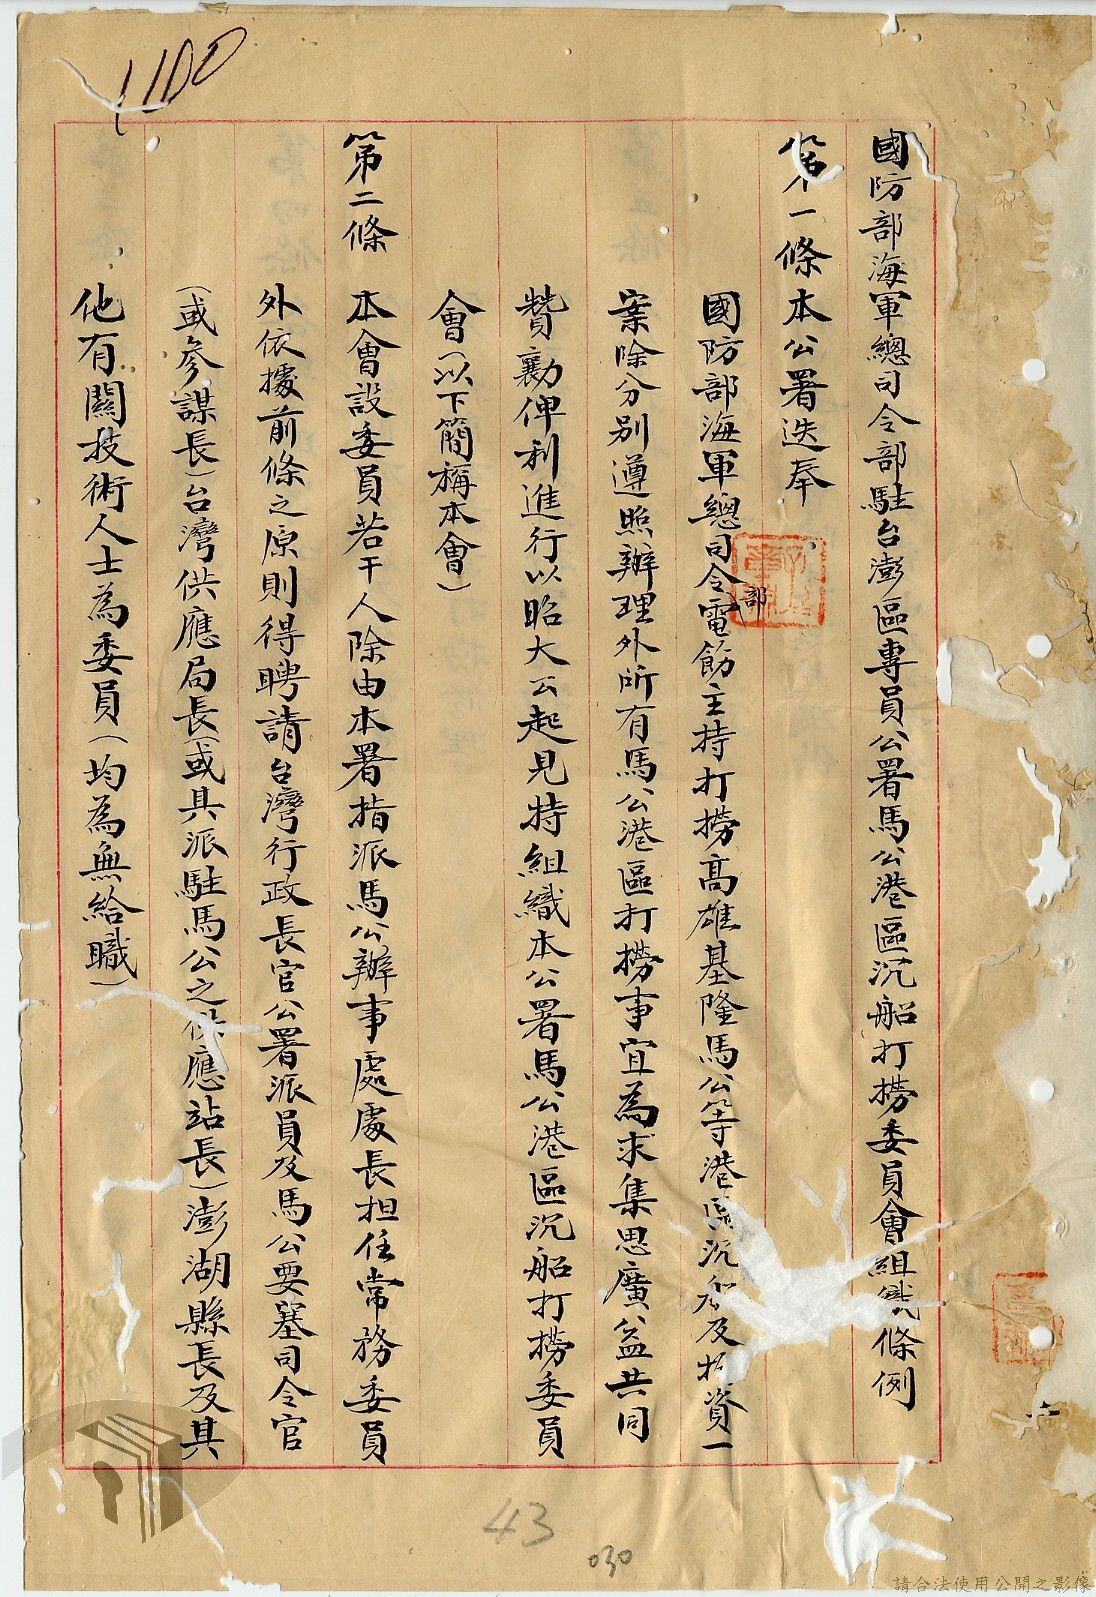 國防部海軍總司令部駐台澎區專員公署馬公港區沉船打撈委員會組織條例
第一條 本公署迭奉
國防部海軍總司令部電飭主持打撈高雄基隆馬公等港區沉船及物資一
案除分別遵照辦理外所有馬公港區打撈事宜為求集思廣益共同
贊勷俾利進行以昭大公起見特組織本公署馬公港區沉船打撈委員
會（以下簡稱本會）
第二條 本會設委員若干人除由本署指派馬公辦事處處長担任常務委員
外依據前條之原則得聘請台灣行政長官公署派員及馬公要塞司令官
（或參謀長）台灣供應局長（或具派駐馬公之供應站長）澎湖縣長及其
他有關技術人士為委員（均為無給職）
1100
43
030
請合法使用公開之影像